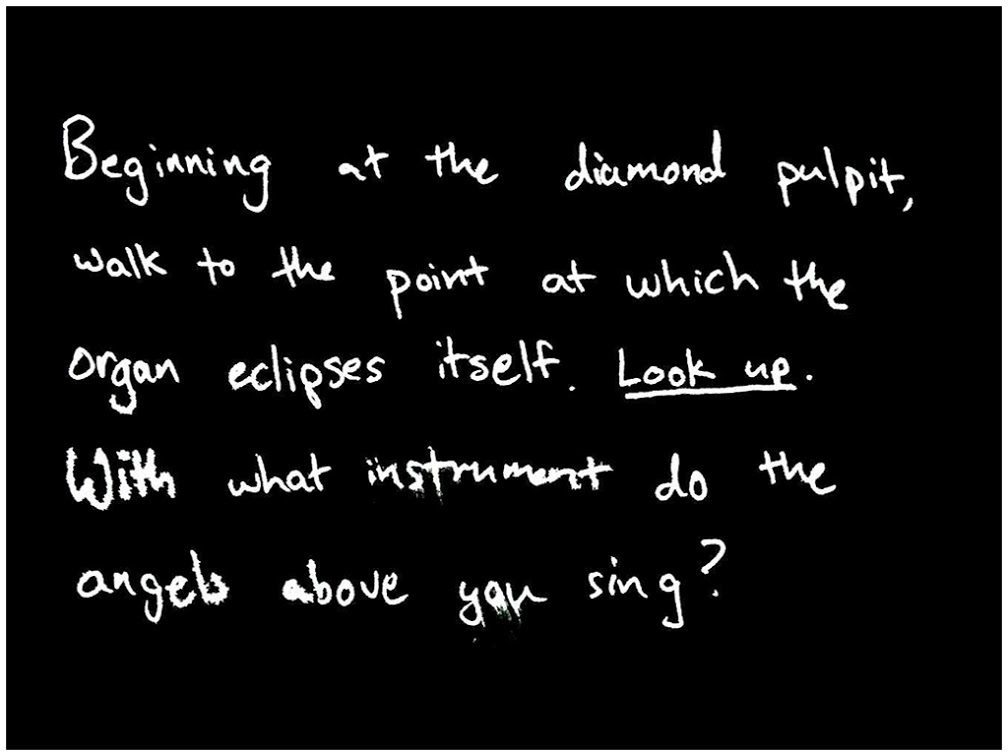 Beginning at the diamond pulpit,
walk to the point at which the
organ eclipses itself. Look up.
With what instrument do the
angels above you sing?